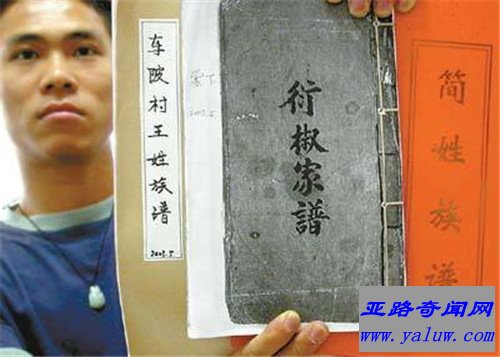 车陂村王姓族谱
2002.5
2002.5
衍椒家譜
简姓族谱
亚路奇闻网
www.yaluw.com